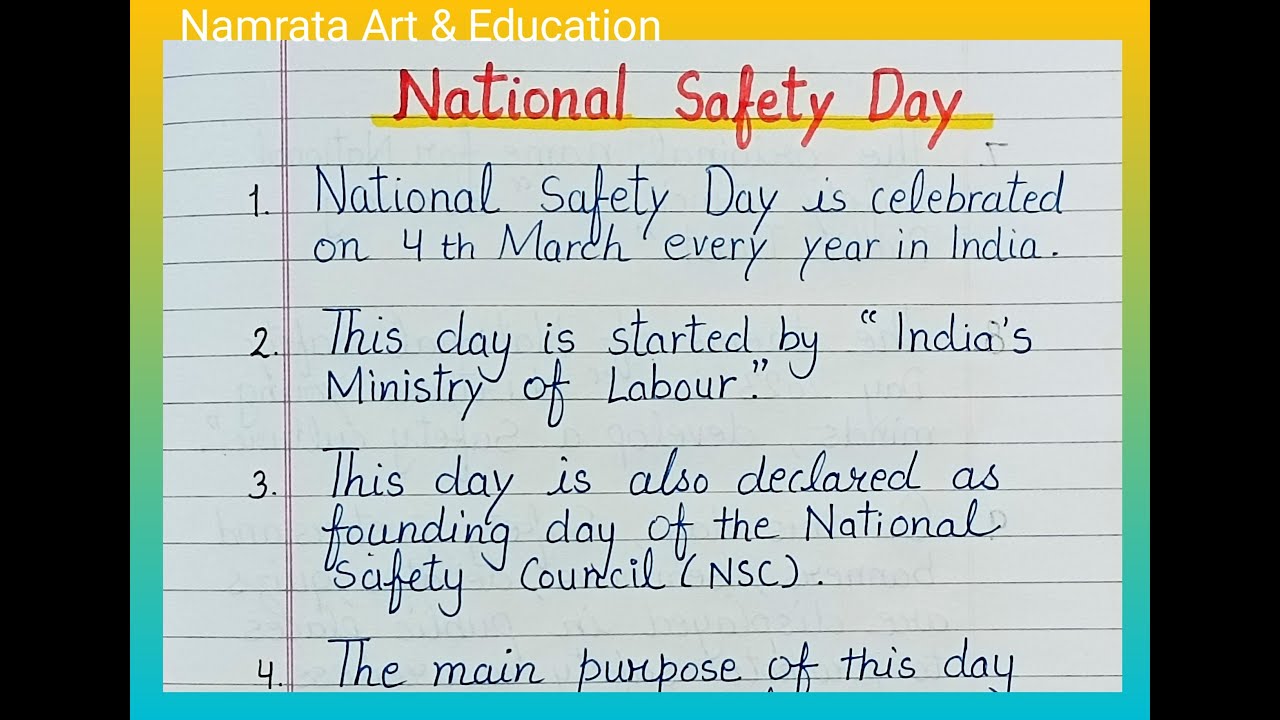 Namrata Art & Education
National Safety Day
1. National Safety Day is celebrated
on 4th March every year in India.
2. This day is started by "India's
Ministry of Labour."
3. This day is also declared as
founding day of the National
Safety Council (NSC).
4. The main purpose of this day